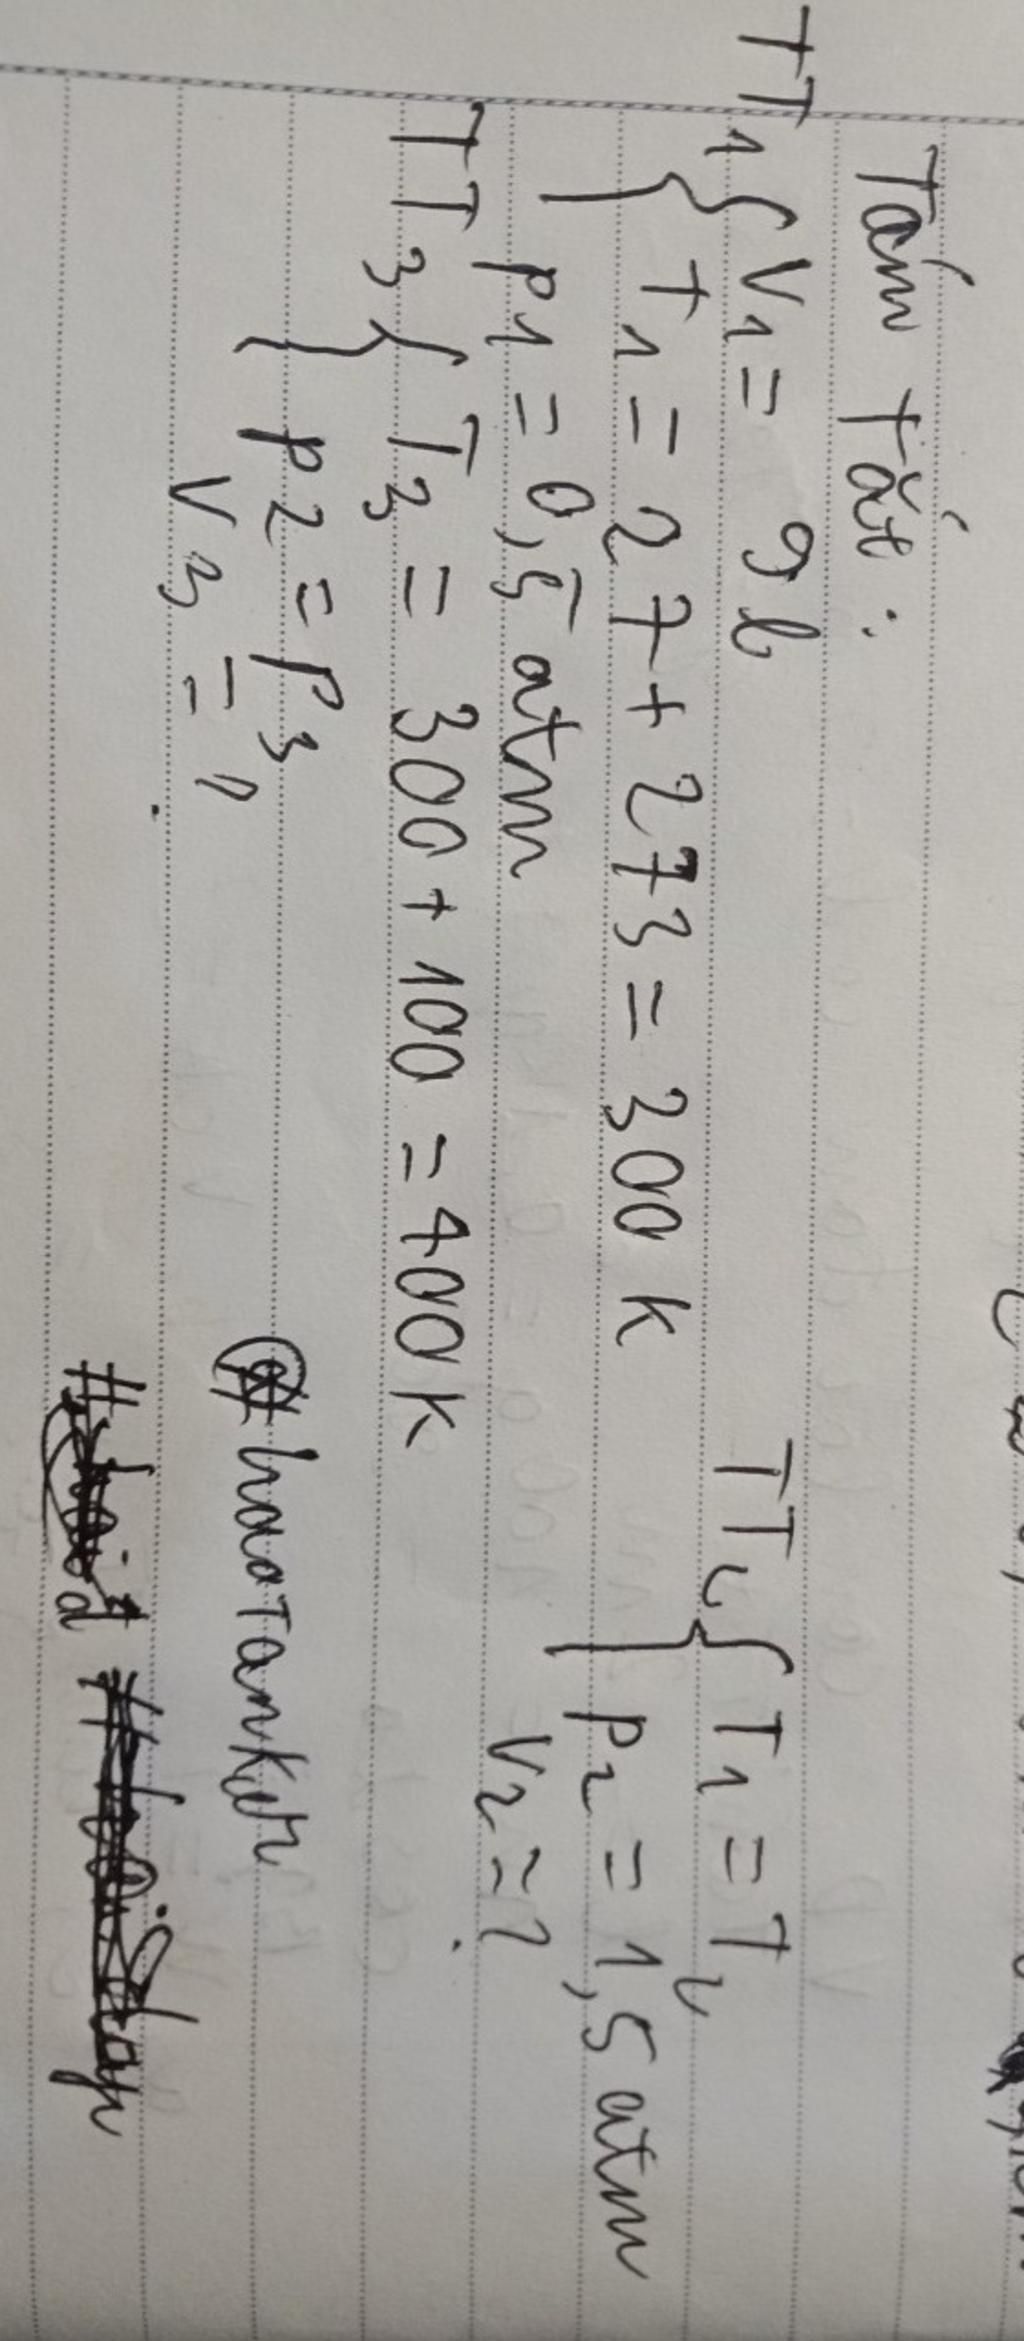 Tóm tắt:
TT1 { V1 = 9l
T1 = 27 + 273 = 300 K
P1 = 0,5 atm
TT2 { T1 = T2
P2 = 1,5 atm
V2 = ?
TT3 { T3 = 300 + 100 = 400 K
P2 = P3
V3 = ?
#haoTanker